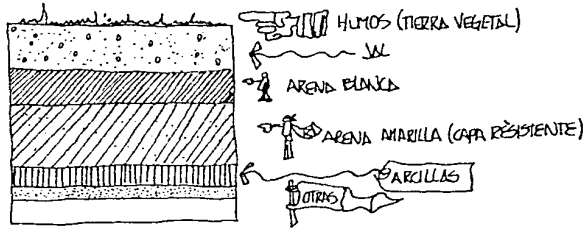 HUMOS (TIERRA VEGETAL)
JAL
ARENA BLANCA
ARENA AMARILLA (CAPA RÈSISTENTE)
ARCILLAS
OTRAS